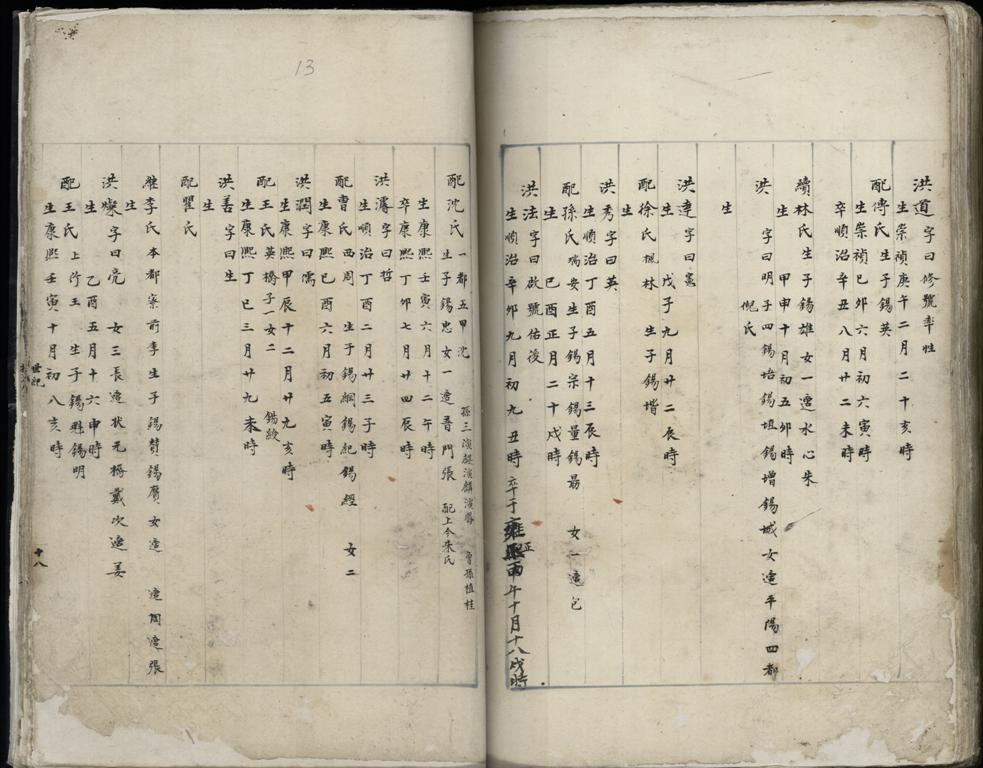 洪道字曰修號率性
生崇禎庚午二月二十亥時
配傅氏生子錫英
生崇禎己卯六月初六寅時
卒順治辛丑八月廿二未時
續林氏生子錫雄女一適水心朱
生甲申十月初五卯時
洪 字曰明子四錫培錫坦錫增錫城女適平陽四都
倪氏
生
洪達字曰憲
生戊子九月廿二辰時
配徐氏楓林 生子錫增
生
洪秀字曰英
生順治丁酉五月十三辰時
配孫氏瑞安生子錫宗錫量錫勗 女一適包
生己酉正月二十戌時
洪法字曰啟號佑後
生順治辛卯九月初九丑時 卒于雍正 丙午十月十八戌時
孫三演 演麟演 曾孫植桂
配沈氏 一都五甲沈
生子錫忠女一適普門張 配上今朱氏
生康熙壬寅六月十二午時
卒康熙丁卯七月廿四辰時
洪濬字曰哲
生順治丁酉二月廿三子時
配曹氏西周 生子錫綱錫紀錫經 女二
生康熙己酉六月初五寅時
洪潤字曰儒
生康熙甲辰十二月廿九亥時
配王氏英橋子一女二 錫綬
生康熙丁巳三月廿九未時
洪善字曰生
生
配瞿氏
繼李氏本都寮前李生子錫贊錫賡女適 適周適張
生
洪燦字曰亮 女三長適狀元橋戴次適姜
生 乙酉五月十六申時
配王氏上竹王 生子錫 錫明
生康熙壬寅十月初八亥時
世紀
十八
13